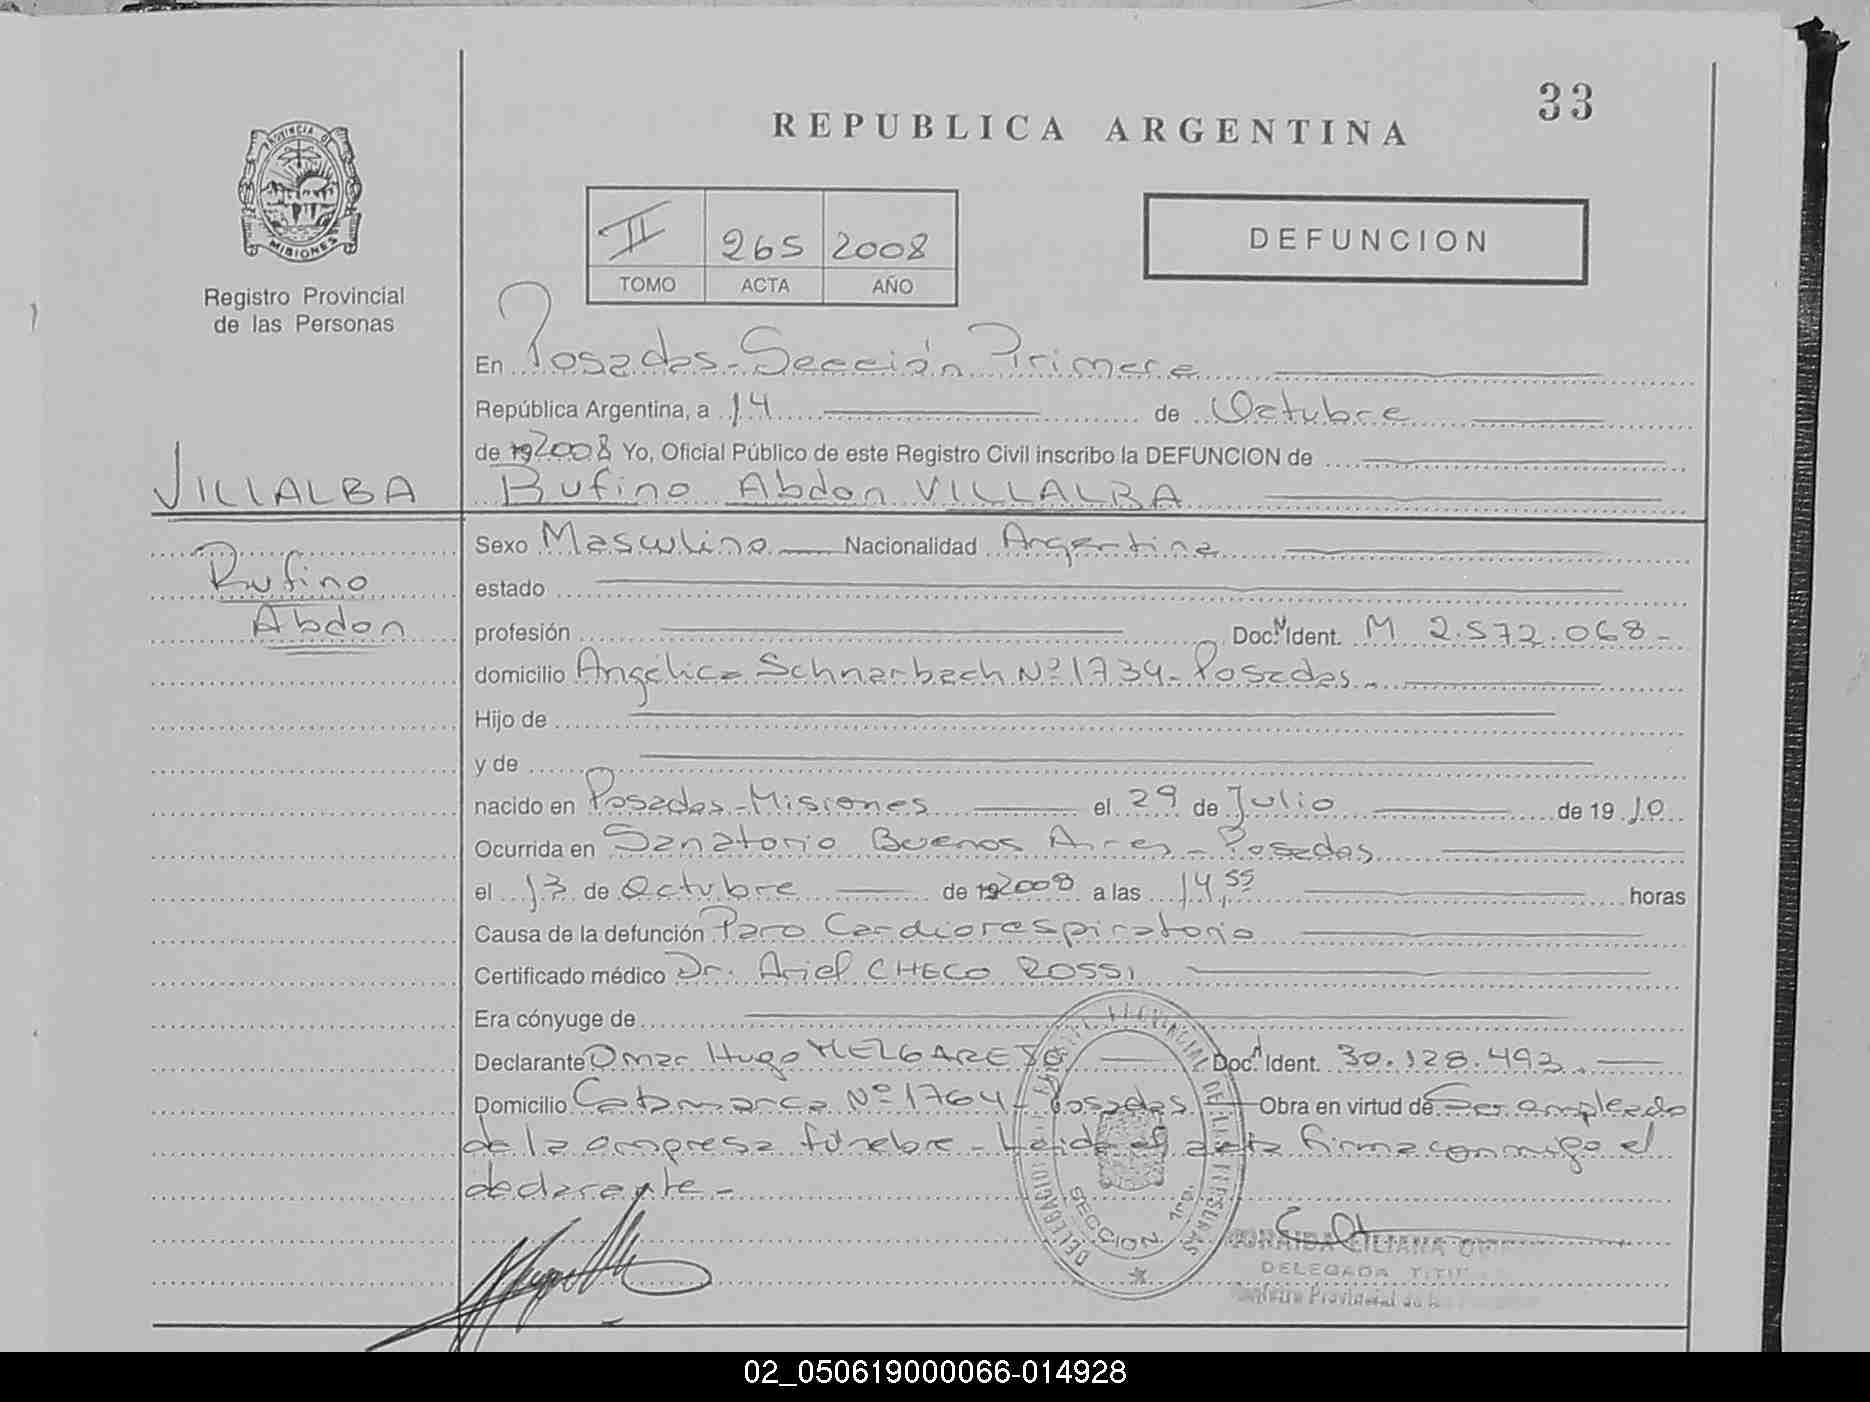 33
REPUBLICA ARGENTINA
PROVINCIA DE
MISIONES
Registro Provincial
de las Personas
II 265 2008
TOMO ACTA AÑO
DEFUNCION
En Posadas - Sección Primera
República Argentina, a 14 de Octubre
de 192008 Yo, Oficial Público de este Registro Civil inscribo la DEFUNCION de
VILLALBA
Rufino Abdon VILLALBA
Rufino
Abdon
Sexo Masculino Nacionalidad Argentina
estado
profesión Doc. N Ident. M 2.572.068-
domicilio Angélica Schnarbach Nº 1734- Posadas.
Hijo de
y de
nacido en Posadas-Misiones el 29 de Julio de 19 10
Ocurrida en Sanatorio Buenos Aires - Posadas
el 13 de Octubre de 192008 a las 14,55 horas
Causa de la defunción Paro Cardiorespiratorio
Certificado médico Dr. Ariel CHECO ROSSI
Era cónyuge de
Declarante Omar Hugo MELGAREJO Doc. N Ident. 30.128.493.
Domicilio Catamarca Nº 1764- Posadas Obra en virtud de Ser empleado
de la empresa fúnebre - Leida el acta firma conmigo el
declarante -
SECCION 1ra.
LILIANA
DELEGADA
Registro Provincial de las
02_050619000066-014928